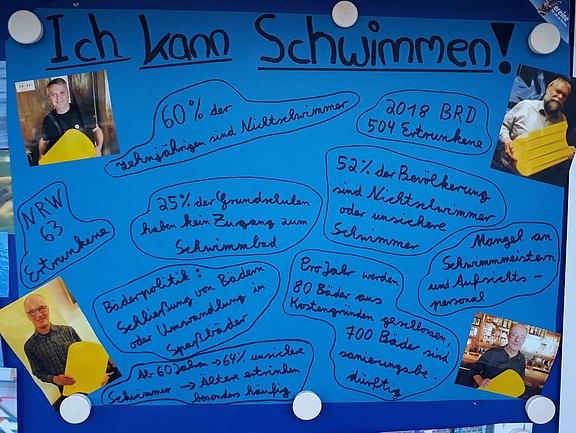 Ich kann Schwimmen!
60% der
zehnjährigen sind Nichtschwimmer
2018 BRD
504 Ertrunkene
NRW
63
Ertrunkene
25% der Grundschulen
haben kein Zugang zum
Schwimmbad
52% der Bevölkerung
sind Nichtschwimmer
oder unsichere
Schwimmer
Mangel an
Schwimmmeistern
und Aufsichts-
personal
Bäderpolitik:
Schließung von Bädern
oder Umwandlung in
Spaßbäder
Pro Jahr werden
80 Bäder aus
Kostengründen geschlossen,
700 Bäder sind
sanierungsbe-
dürftig
Ab 60 Jahren → 64% unsichere
Schwimmer → Ältere ertrinken
besonders häufig